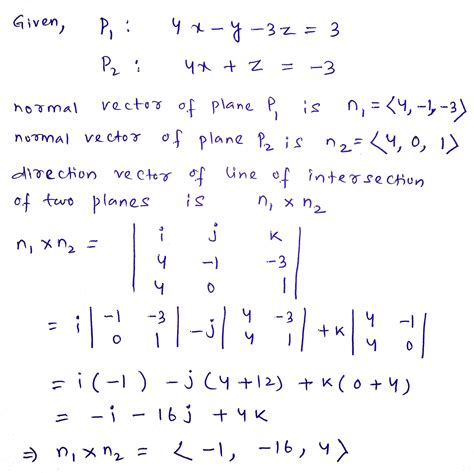 Given, P₁ : 4x - y - 3z = 3
P₂ : 4x + z = -3
normal vector of plane P₁ is n₁ = <4, -1, -3>
normal vector of plane P₂ is n₂ = <4, 0, 1>
direction vector of line of intersection
of two planes is n₁ x n₂
n₁ x n₂ = | i j k |
| 4 -1 -3 |
| 4 0 1 |
= i | -1 -3 | - j | 4 -3 | + k | 4 -1 |
| 0 1 | | 4 1 | | 4 0 |
= i(-1) - j(4+12) + k(0+4)
= -i - 16j + 4k
⇒ n₁ x n₂ = < -1, -16, 4>